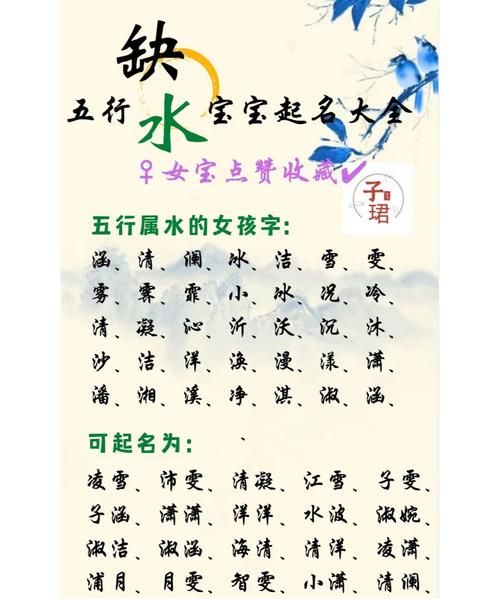 缺
五行水宝宝起名大全
♀女宝点赞收藏✔
子珺
五行属水的女孩字:
涵、清、澜、冰、洁、雪、雯、
雾、霖、霏、小、冰、况、冷、
清、凝、沁、沂、沃、沉、沐、
沙、洁、洋、涣、漫、漾、潇、
潘、湘、溪、净、淇、淑、涵、
可起名为:
凌雪、沛雯、清凝、江雪、子雯、
子涵、潇潇、洋洋、水波、淑婉、
淑洁、淑涵、海清、清洋、凌潇、
浦月、月雯、智雯、小潇、清澜、